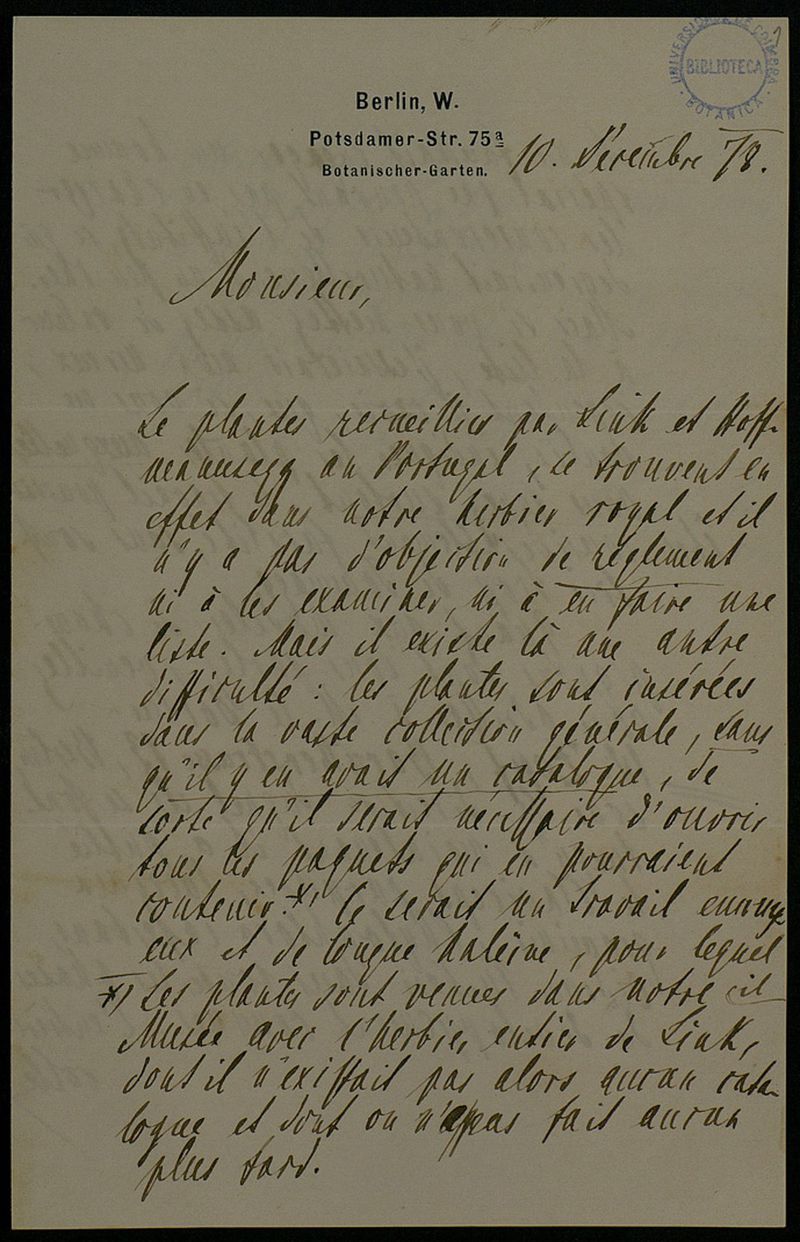 UNIVERSIDADE DE COIMBRA
BIBLIOTECA
BOTANICA
Berlin, W.
Potsdamer-Str. 75a
Botanischer-Garten.
10. Décembre 78.
Monsieur,
Le plantes recueillies par Link et Hoff-
mannsegg en Portugal, se trouvent en
effet dans notre herbier royal et il
n'y a pas d'objection de réglement
ni à les examiner, ni à en faire une
liste. Mais il existe là une autre
difficulté : les plantes sont insérées
dans la vaste collection générale, sans
qu'il y en avait un catalogue, de
sorte qu'il serait nécessaire d'ouvrir
tous les paquets qui en pourraient
contenir. x) Ce serait un travail ennuy-
eux et de longue haleine, pour lequel
il
x) Les plantes sont venues dans notre
Musée avec l'herbier entier de Link,
dont il n'existait pas alors aucun cata-
logue et dont on n'a pas fait aucun
plus tard.